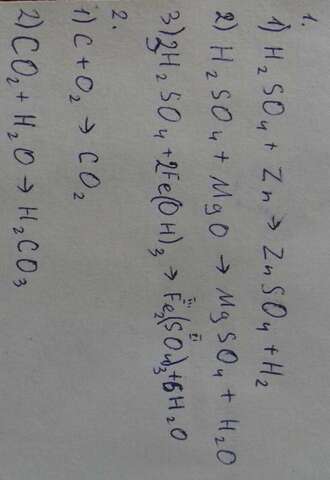 1.
1) H₂SO₄ + Zn → ZnSO₄ + H₂
2) H₂SO₄ + MgO → MgSO₄ + H₂O
3) 3H₂SO₄ + 2Fe(OH)₃ → Fe₂(SO₄)₃ + 6H₂O
2.
1) C + O₂ → CO₂
2) CO₂ + H₂O → H₂CO₃